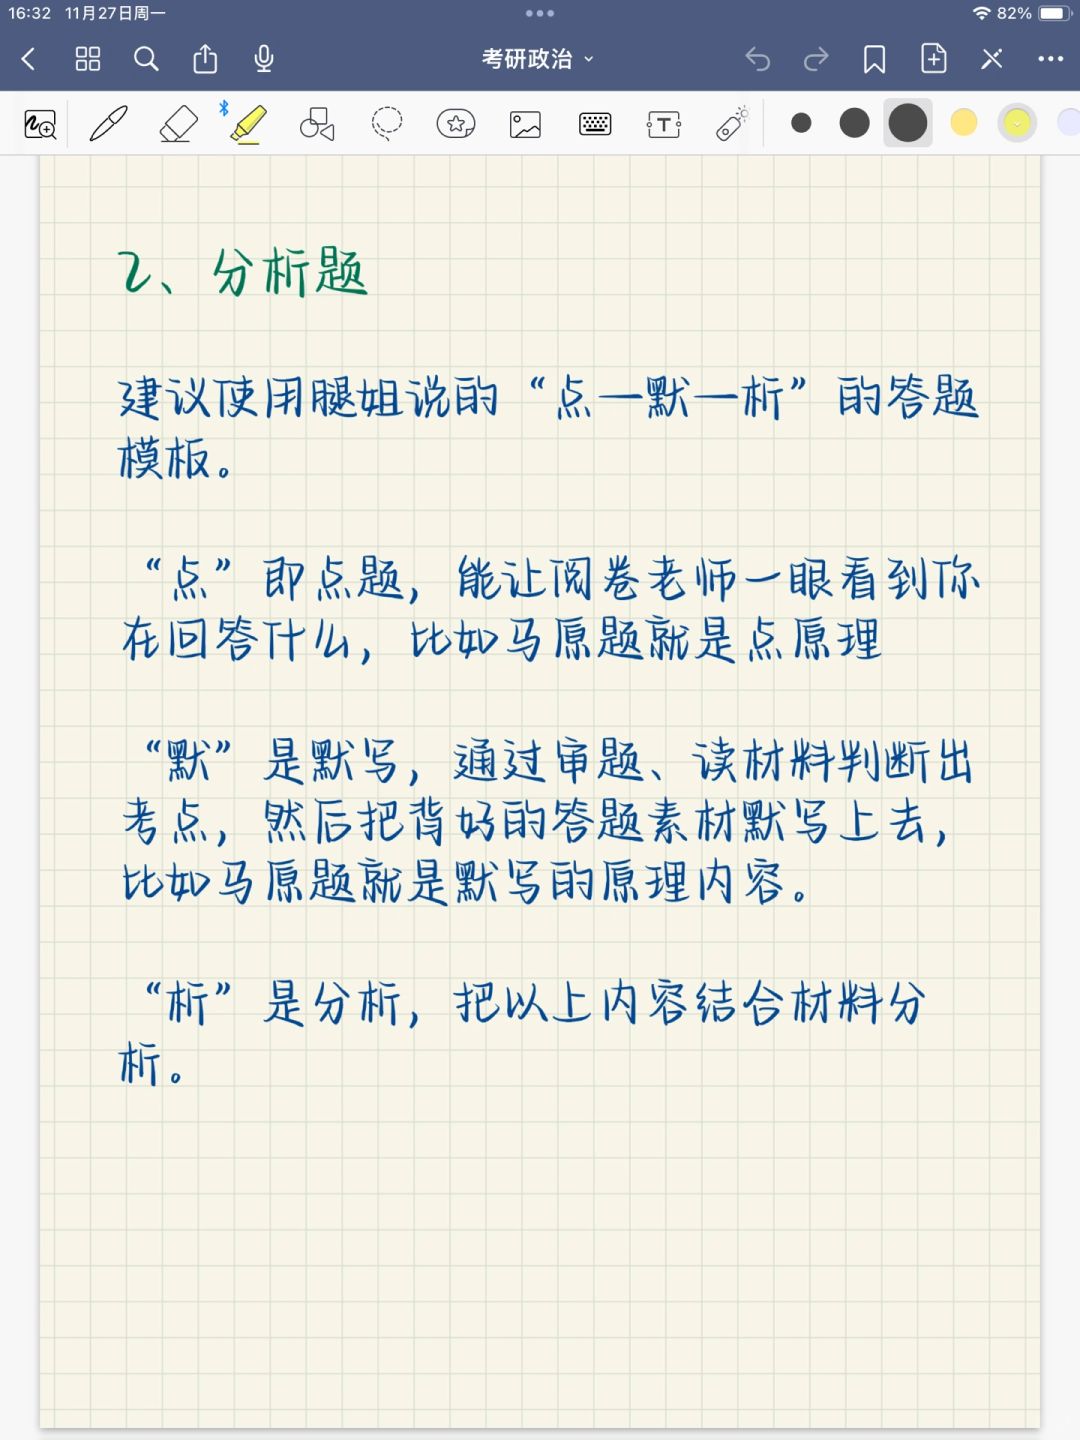 16:32 11月27日周一
82%
考研政治
2、分析题
建议使用腿姐说的“点一默一析”的答题
模板。
“点”即点题，能让阅卷老师一眼看到你
在回答什么，比如马原题就是点原理
“默”是默写，通过审题、读材料判断出
考点，然后把背好的答题素材默写上去，
比如马原题就是默写的原理内容。
“析”是分析，把以上内容结合材料分
析。